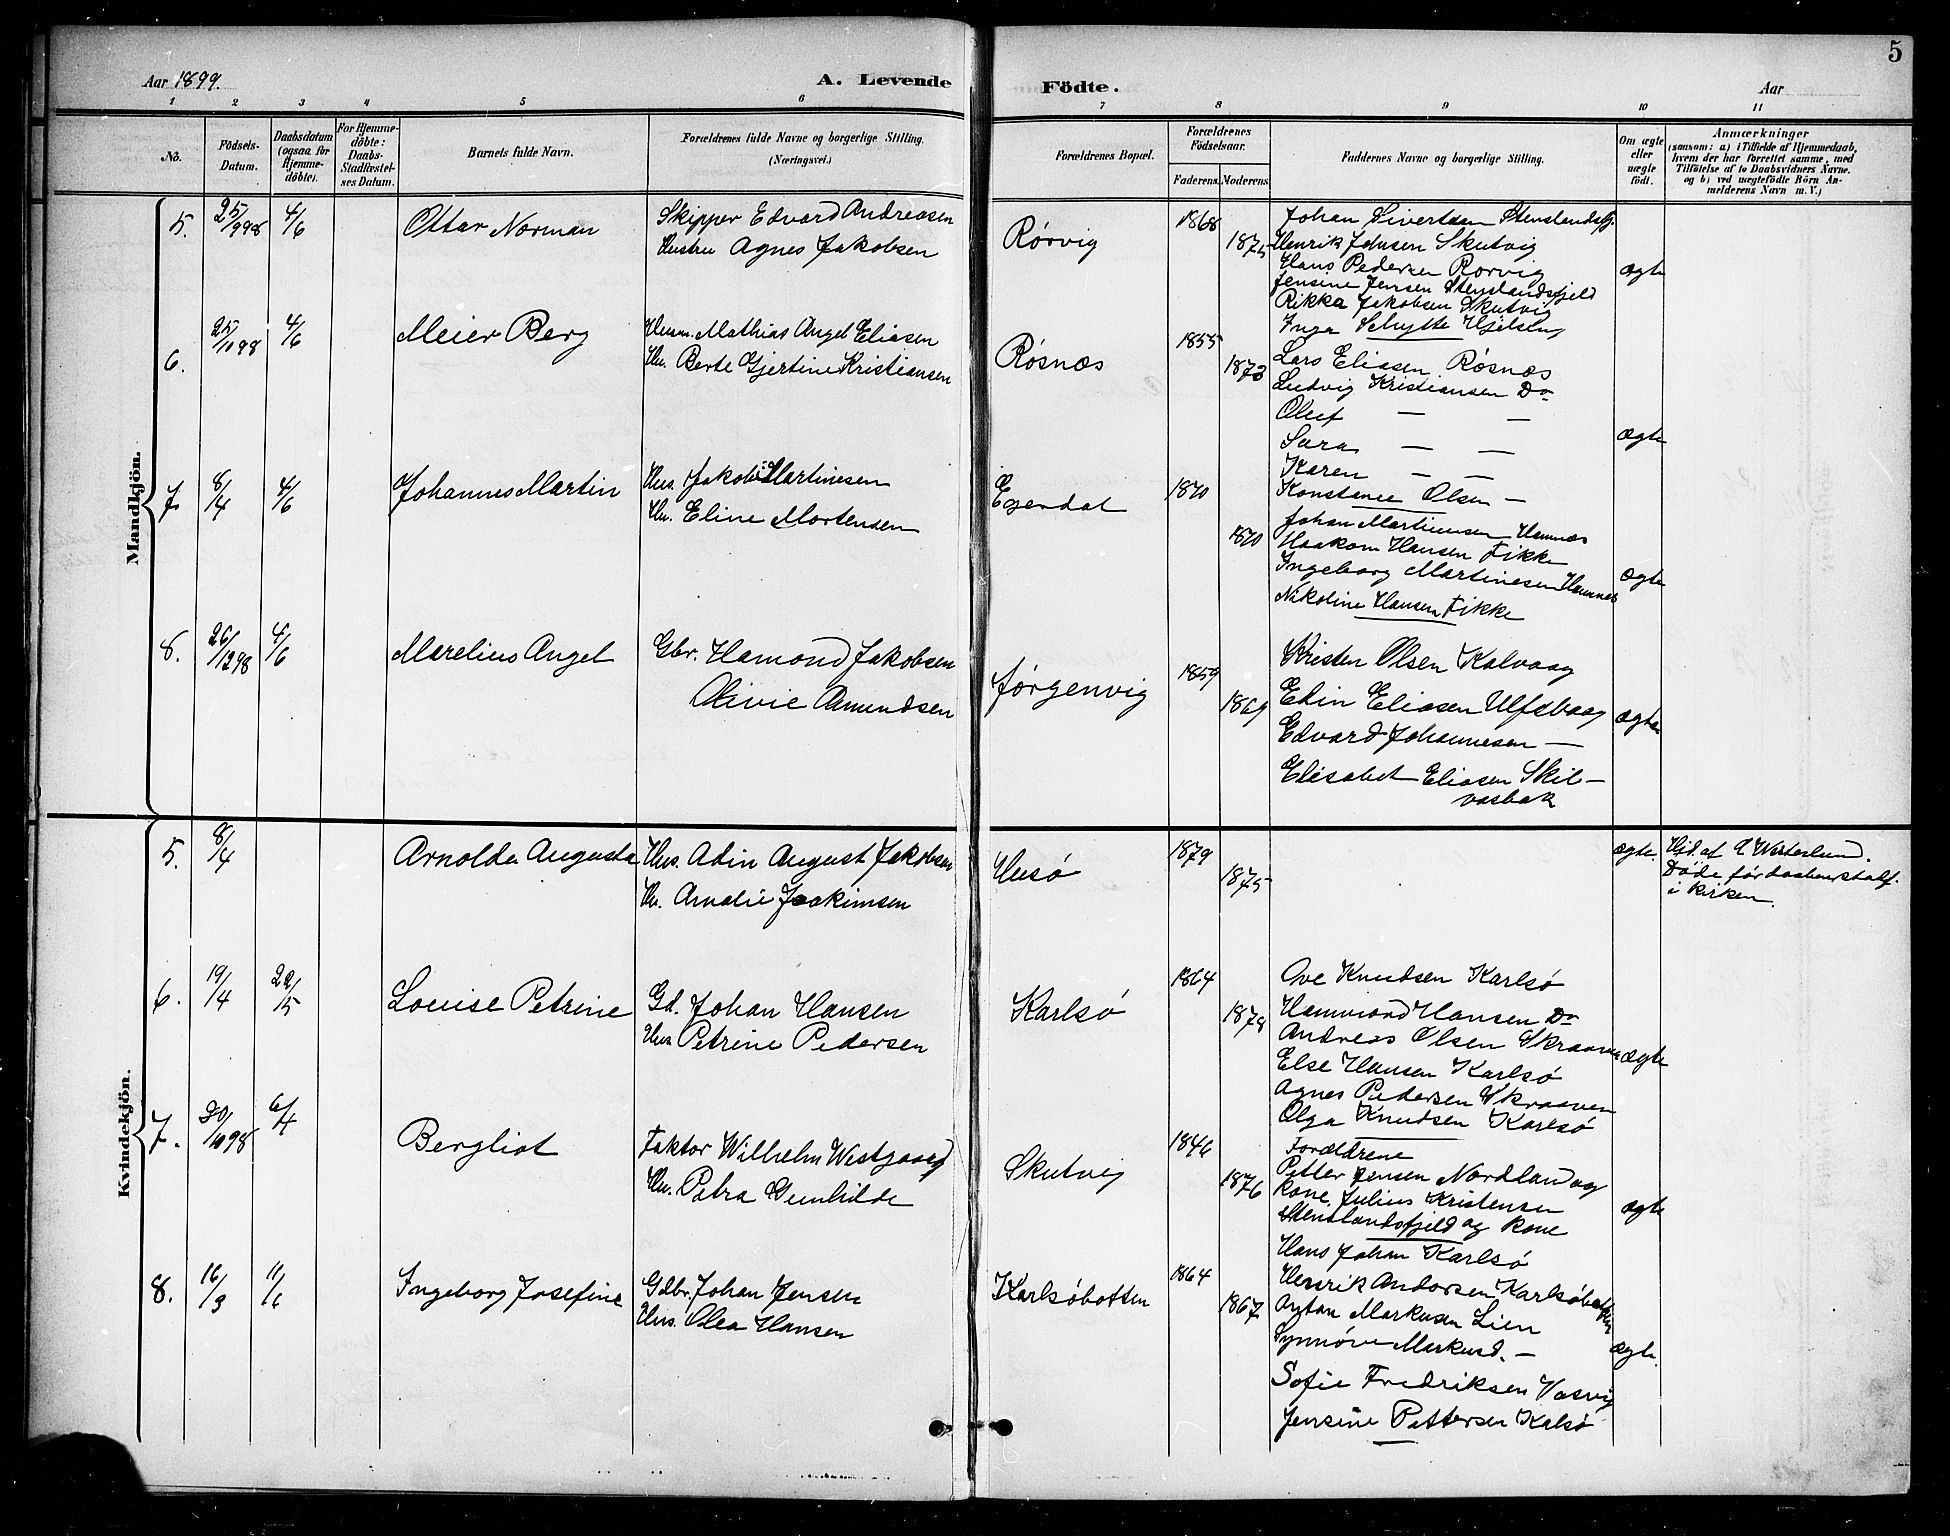 5
Aar 1899.
A. Levende Födte.
Aar
1 2 3 4 5 6 7 8 9 10 11
No.
Födsels-
Datum.
Daabsdatum
(ogsaa for
Hjemme-
döbte).
For Hjemme-
döbte:
Daabs-
Stadfæstel-
ses Datum.
Barnets fulde Navn.
Forældrenes fulde Navne og borgerlige Stilling.
(Næringsvei.)
Forældrenes Bopæl.
Forældrenes
Födselsaar.
Faderens. Moderens.
Faddernes Navne og borgerlige Stilling.
Om ægte
eller
uægte
födt.
Anmærkninger
(saasom: a) i Tilfælde af Hjemmedaab,
hvem der har forrettet samme, med
Tilföielse af to Daabsvidners Navne.
og b) ved uægtefödte Börn An-
melderens Navn m. V.)
Mandkjön.
5. 25/9 98 4/6 Ottar Norman
Skipper Edvard Andreasen
Hustru Agnes Jakobsen
Rørvig 1868 1875
Johan Sivertsen Stenslandsfj.
Henrik Johnsen Skutvig
Hans Pedersen Rørvig
Jensine Jensen Stenslandsfjeld
Rikka Jakobsen Skutvig
Inga Schytte
ægte
6. 25/10 98 4/6 Meier Berg
Husm. Mathias Angel Eliasen
Hu. Berte Gjertine Kristiansen
Røsnæs 1855 1873
Lars Eliasen Røsnæs
Ludvig Kristiansen Do
Oluf — —
Sara — —
Karen — —
Konstance Olsen —
ægte
7. 8/4 4/6 Johannes Martin
Hus. Jakob Martinesen
Hu. Eline Mortensen
Egendal 1870 1870
Johan Martinesen Hamnæs
Haakon Hansen Fikke
Ingeborg Martinesen Hamnæs
Nikoline Hansen Fikke
ægte
8. 26/12 98 4/6 Marelius Angel
Gbr. Hamond Jakobsen
Olivie Amundsen
Jørgenvig 1859 1869
Kristen Olsen Kalvaag
Edin Eliasen Ulfsvaag
Edvard Johannesen —
Elisabet Eliasen Skil-
vasbak
ægte
Kvindekjön.
5. 8/4 Arnolda Augusta
Hus. Adin August Jakobsen
Hu. Amalie Joakimsen
Husø 1879 1875
ægte.
Hjd. af A Westerlund.
Døde før daabens stadf.
i kirken.
6. 19/4 22/5 Louise Petrine
Gd. Johan Hansen
Hus Petrine Pedersen
Karlsø 1864 1878
Ove Knudsen Karlsø
Hammond Hansen Do
Andreas Olsen Skraaven
Else Hansen Karlsø
Agnes Pedersen Skraaven
Olga Knudsen Karlsø
ægte
7. 30/10 98 6/4 Bergliot
Faktor Wilhelm Westgaard
Hu. Petra Gunhilde
Skutvig 1846 1876
Forældrene
Petter Jensen Nordland og
kone, Julius Kristensen
Stenslandsfjeld og kone
ægte
8. 16/3 11/6 Ingeborg Josefine
Gdbr. Johan Jensen
Hus. Olea Hansen
Karlsøbotten 1864 1867
Hans Johan Karlsø
Henrik Andorsen Karlsøbotten
Anton Markusen Lien
Synnøve Markusd. —
Sofie Fredriksen Vasvig
Jensine Pettersen Kalsø
ægte.